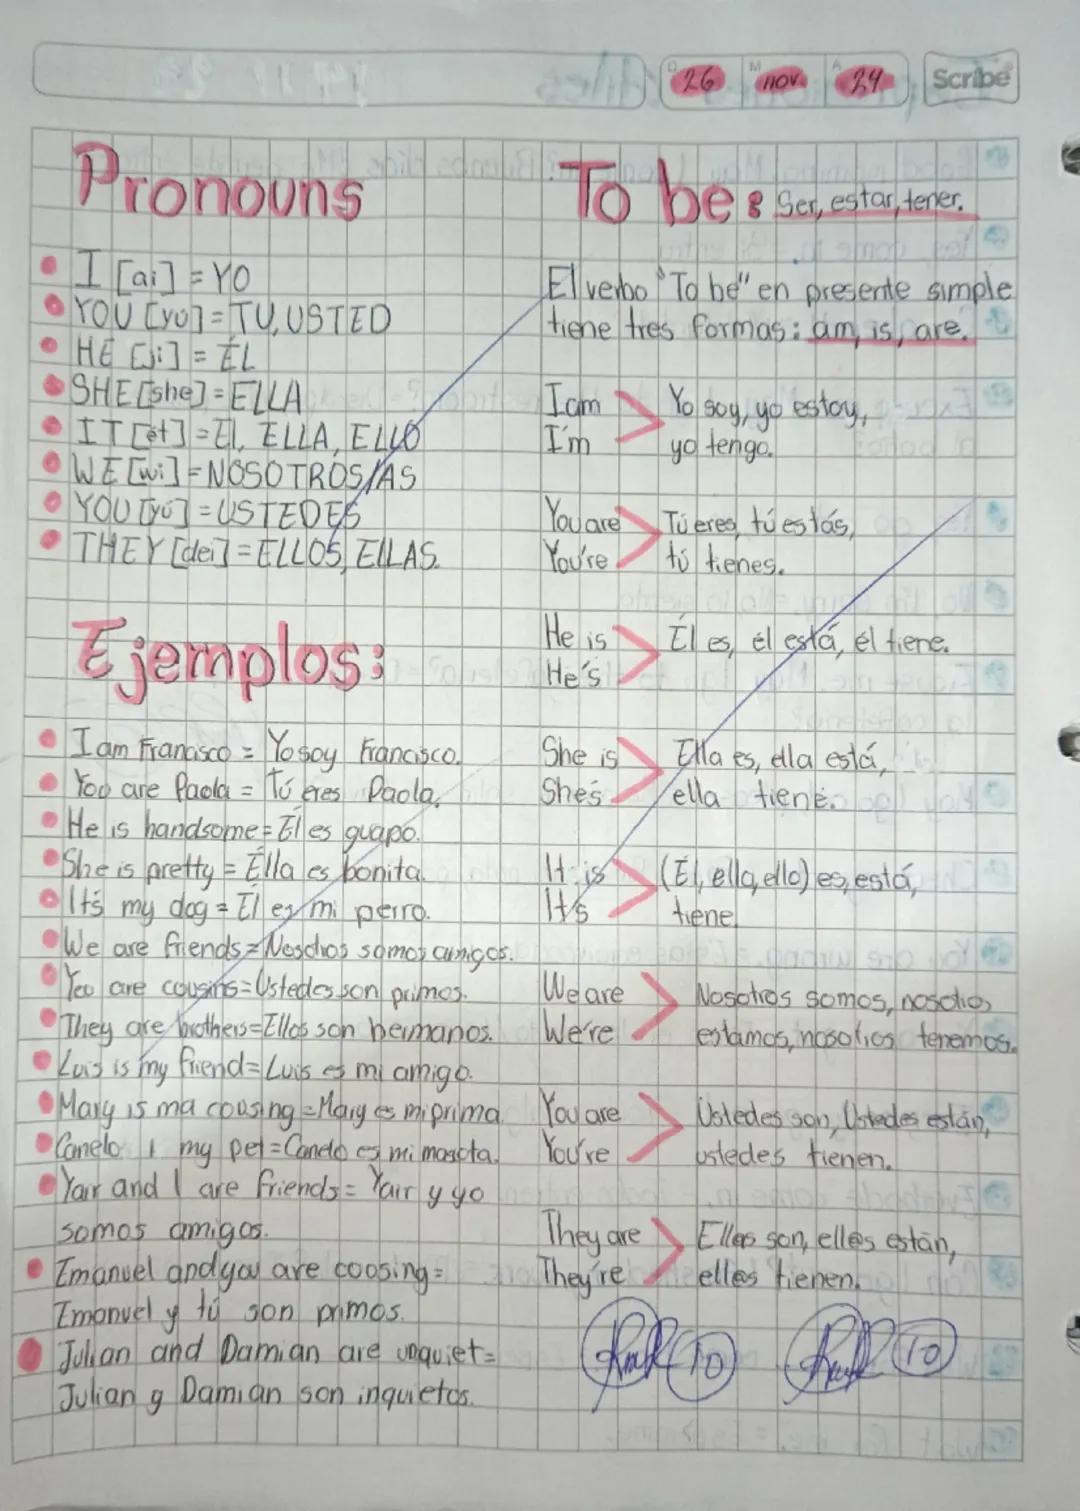 26 nov. 24 Scribe
Pronouns
• I [ai] = YO
• YOU [yu] = TU, USTED
• HE [ji] = ÉL
• SHE [she] = ELLA
• IT [et] = El, ELLA, ELLO
• WE [wi] = NOSOTROS/AS
• YOU [yú] = USTEDES
• THEY [dei] = ELLOS, ELLAS.
Ejemplos:
• I am Francisco = Yo soy Francisco.
• You are Paola = Tú eres Paola.
• He is handsome = El es guapo.
• She is pretty = Élla es bonita.
• It's my dog = El es mi perro.
• We are friends = Nosotros somos amigos.
• You are cousins = Ustedes son primos.
• They are brothers = Ellos son hermanos.
• Luis is my friend = Luis es mi amigo.
• Mary is ma cousing = Mary es mi prima
• Canelo I my pet = Canelo es mi mascota.
• Yair and I are friends = Yair y yo
somos amigos.
• Emanuel and you are coosing =
Emanuel y tú son primos.
• Julian and Damian are unquiet =
Julian y Damian son inquietos.
To be: Ser, estar, tener.
El verbo "To be" en presente simple
tiene tres formas: am, is, are.
I am > Yo soy, yo estoy,
I'm yo tengo.
You are > Tú eres, tú estás,
You're tú tienes.
He is > Él es, él está, él tiene.
He's
She is > Ella es, ella está,
She's ella tiene.
It is > (El, ella, ello) es, está,
It's tiene.
We are > Nosotros somos, nosotros
We're estamos, nosotros tenemos.
You are > Ustedes son, Ustedes están,
You're ustedes tienen.
They are > Ellos son, ellos están,
They're ellos tienen.
10 10